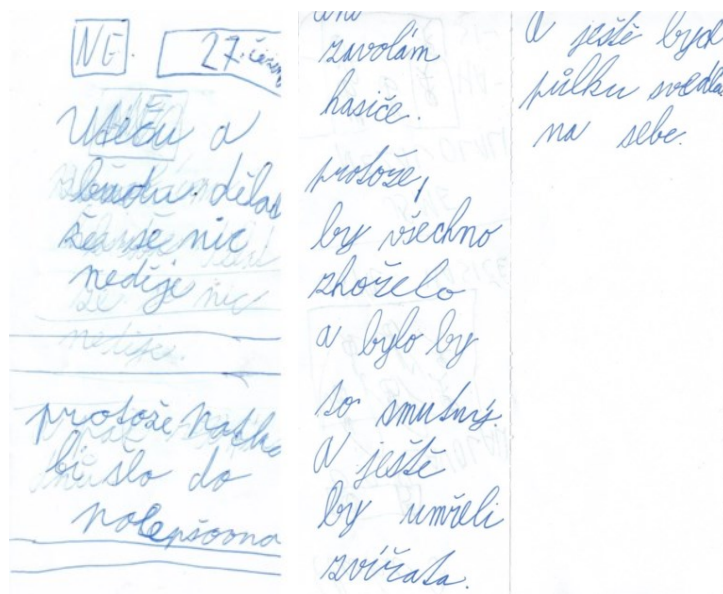 NE.
27.
Uteču a
budu. dělat
že se nic
neděje
protože
bi šlo do
polepšovna
zavolám
hasiče.
protože,
by všechno
shořelo
a bylo by
to smutný.
A ještě
by umřeli
zvířata.
A ještě bych
půlku svedla
na sebe.